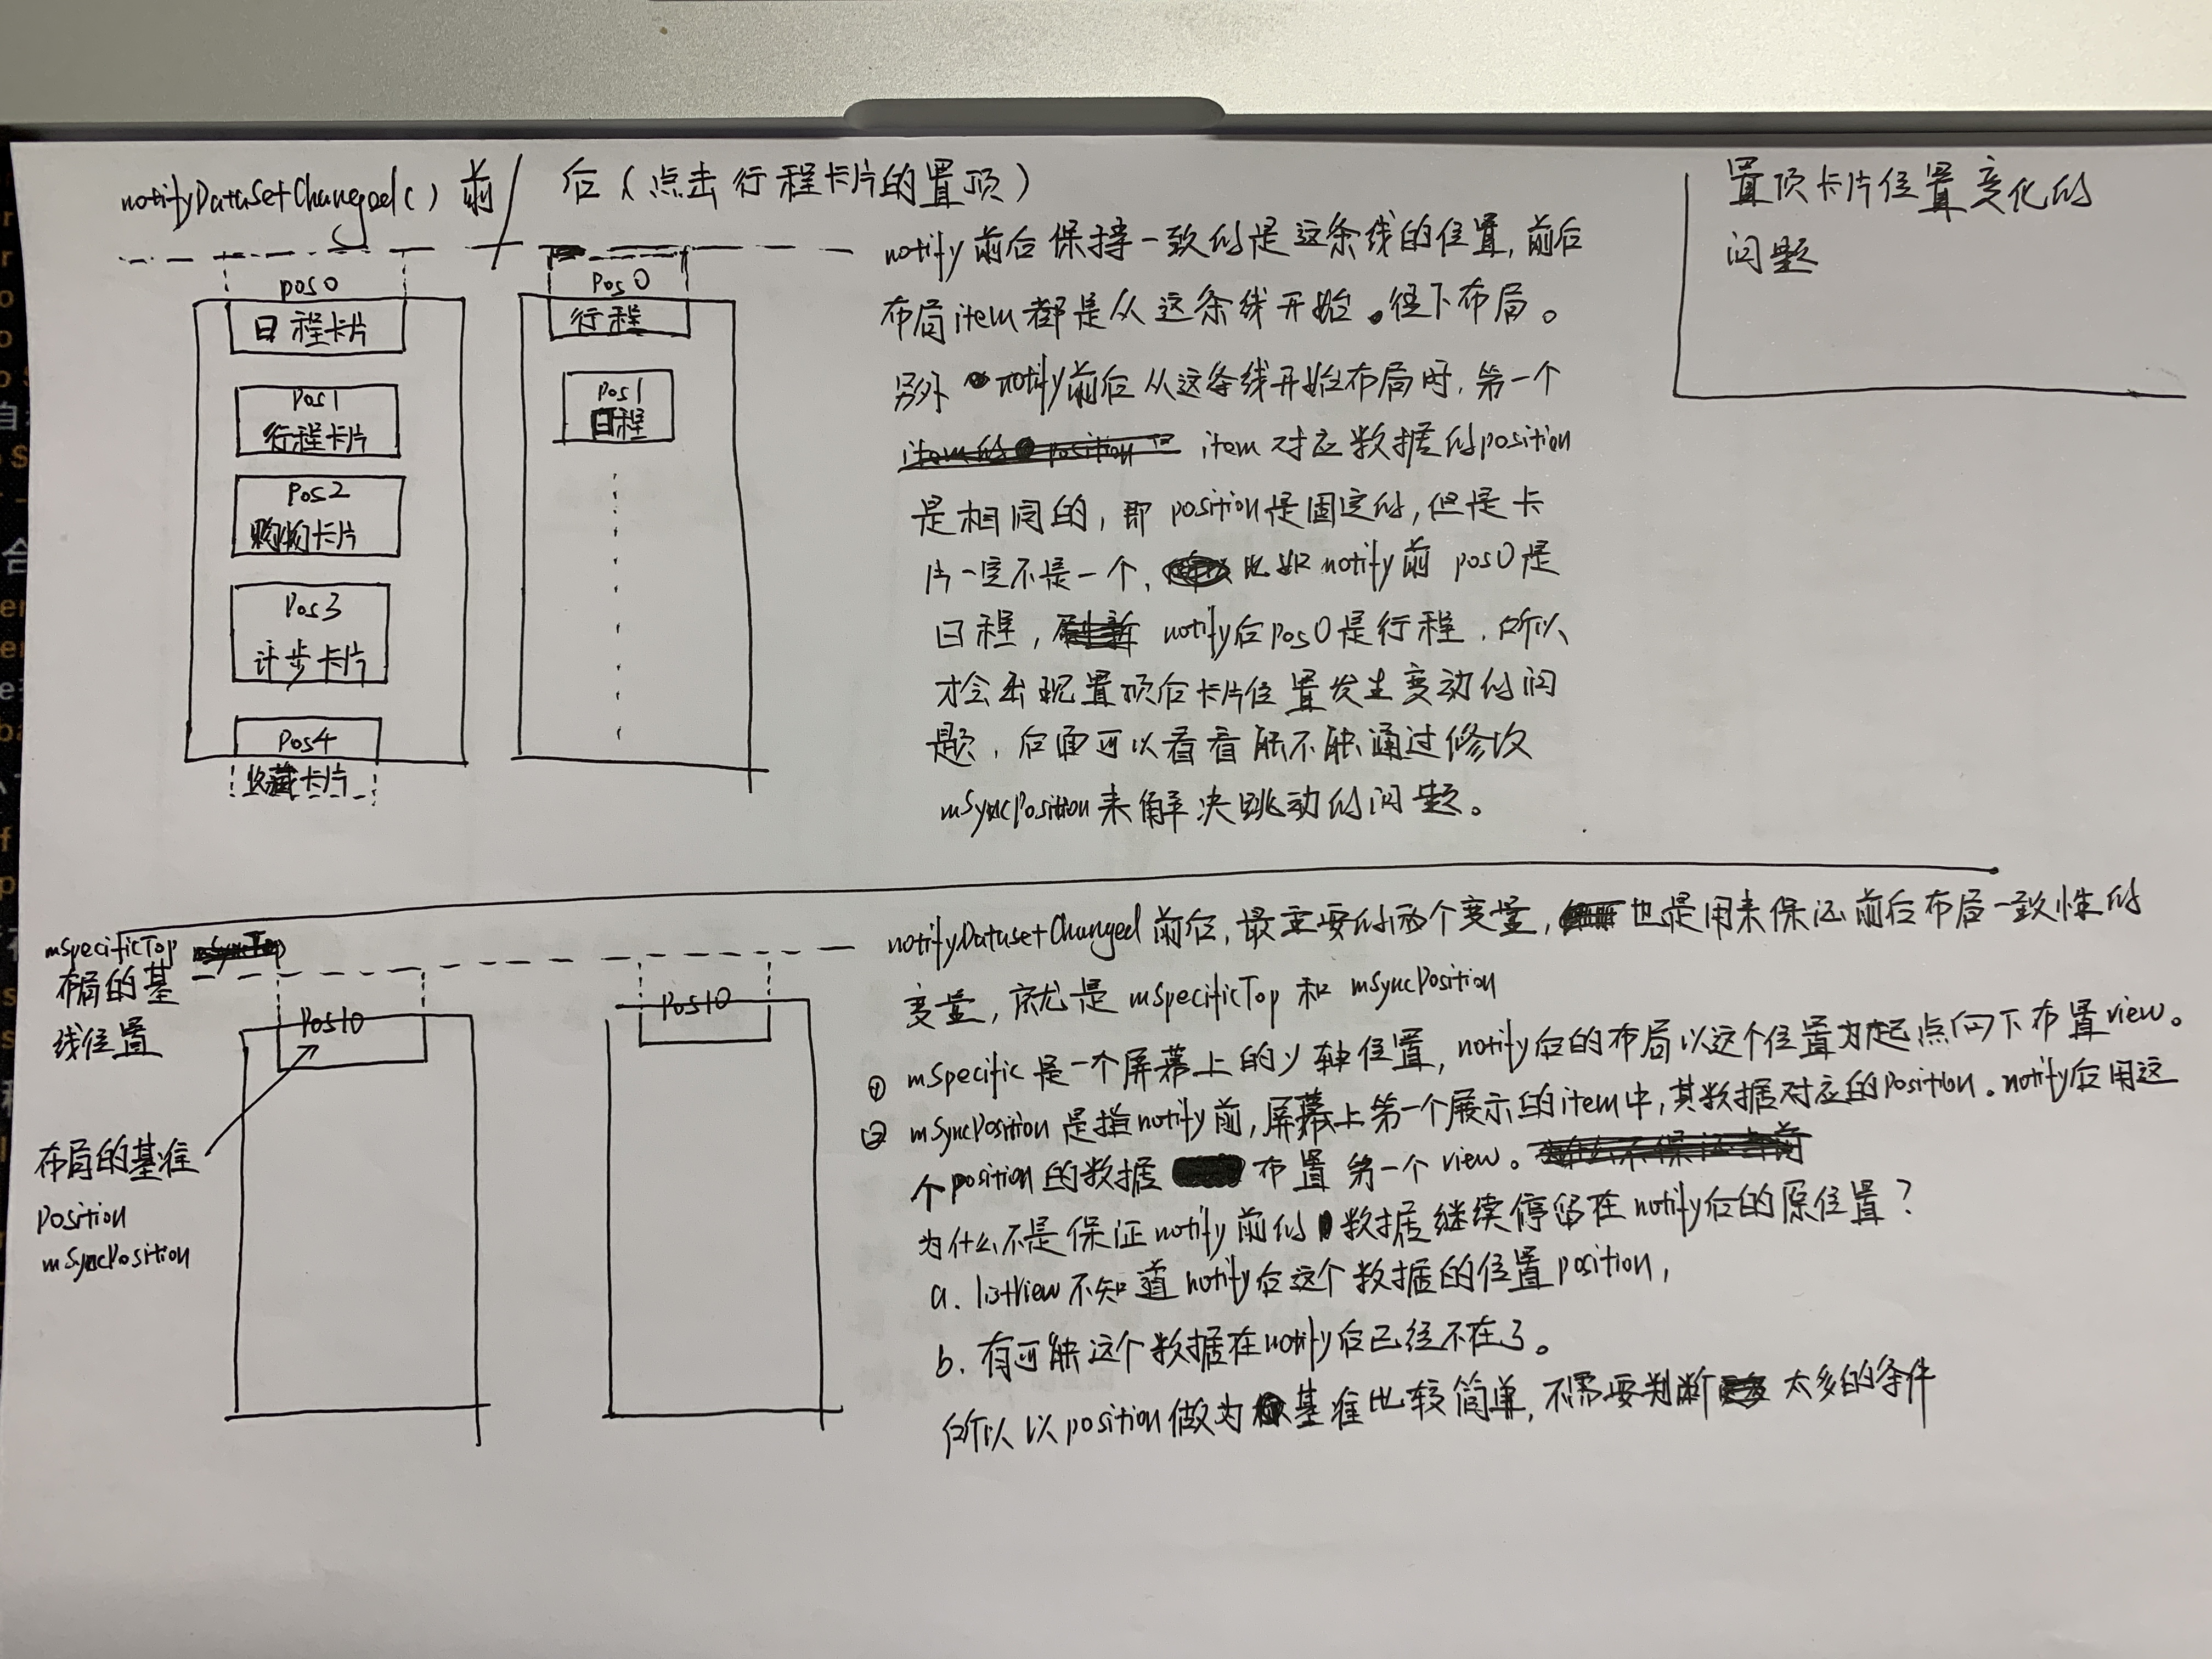 notifyDataSetChanged() 前/后(点击行程卡片的置顶)
置顶卡片位置变化的
问题
pos0
日程卡片
Pos1
行程卡片
Pos2
购物卡片
Pos3
计步卡片
Pos4
收藏卡片
Pos0
行程
Pos1
日程
notify前后保持一致的是这条线的位置,前后
布局item都是从这条线开始。往下布局。
另外 notify前后从这条线开始布局时,第一个
item对应数据的position
是相同的,即position是固定的,但是卡
片一定不是一个,比如notify前pos0是
日程,notify后pos0是行程.所以
才会出现置顶后卡片位置发生变动的问
题,后面可以看看能不能通过修改
mSyncPosition来解决跳动的问题。
mSpecificTop
布局的基
线位置
Pos10
Pos10
布局的基准
Position
mSyncPosition
notifyDataset Changed前后,最重要的两个变量,也是用来保证前后布局一致性的
变量,就是 mSpecificTop 和 mSyncPosition
① mSpecific是一个屏幕上的y轴位置,notify后的布局以这个位置为起点向下布置view。
② mSyncPosition是指notify前,屏幕上第一个展示的item中,其数据对应的Position。notify后用这
个position的数据 布置第一个view。
为什么不是保证notify前的数据继续停留在notify后的原位置?
a. listView不知道notify后这个数据的位置position,
b. 有可能这个数据在notify后已经不在了。
所以以position做为基准比较简单,不需要判断太多的条件